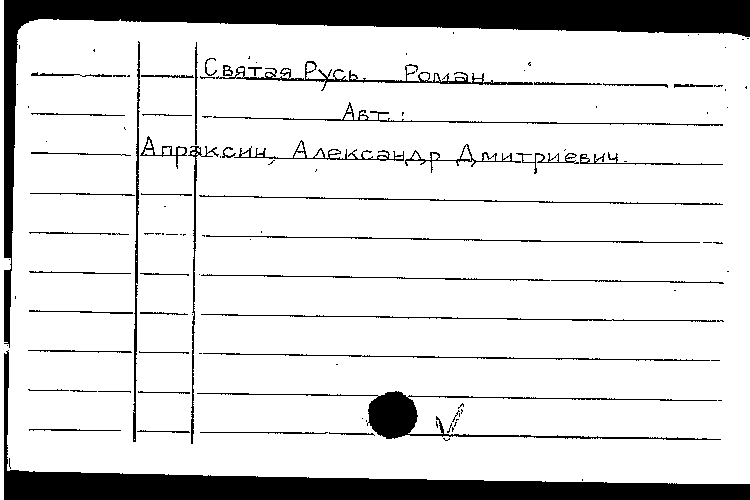 Святая Русь. Роман.
Авт.:
Апраксин, Александр Дмитриевич.